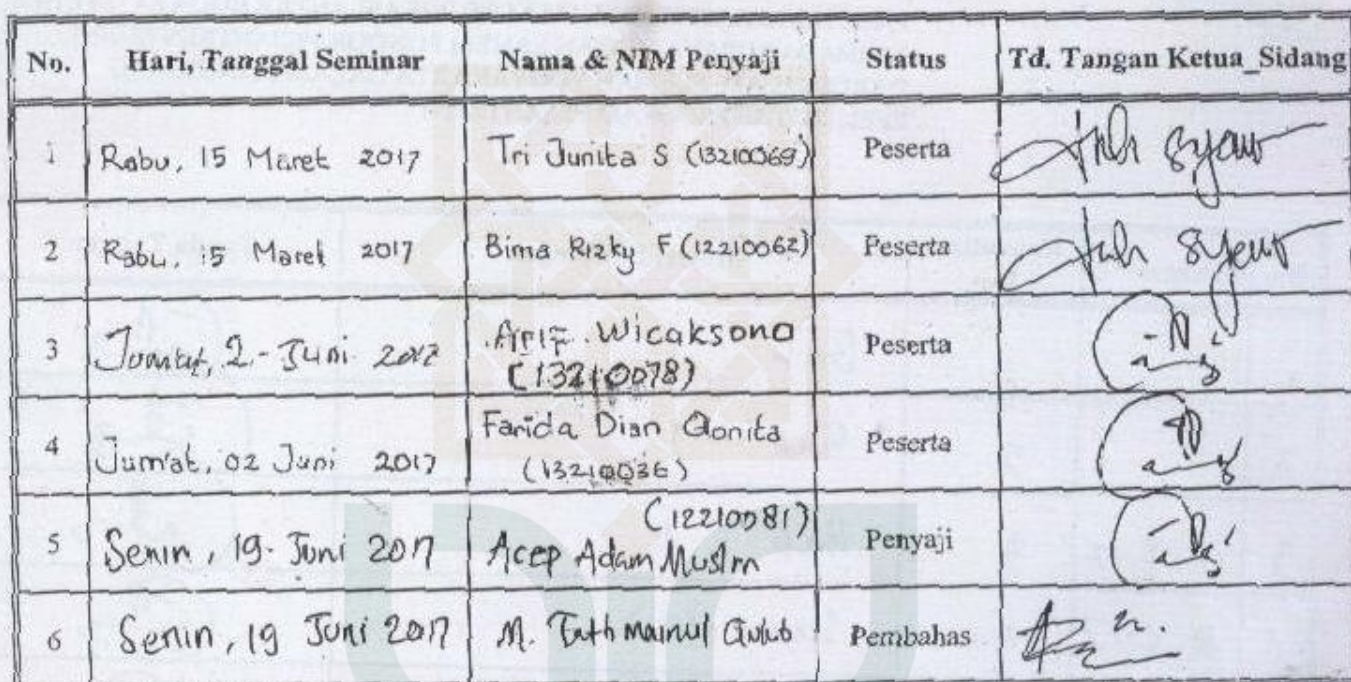 No. Hari, Tanggal Seminar Nama & NIM Penyaji Status Td. Tangan Ketua_Sidang
1 Rabu, 15 Maret 2017 Tri Junita S (13210069) Peserta
2 Rabu, 15 Maret 2017 Bima Rizky F (12210062) Peserta
3 Jumat, 2 - Juni 2017 Arif Wicaksono Peserta
(13210078)
4 Jum'at, 02 Juni 2017 Farida Dian Qonita Peserta
(13210036)
(12210081)
5 Senin, 19 - Juni 2017 Acep Adam Muslim Penyaji
6 Senin, 19 Juni 2017 M. Qulub Pembahas